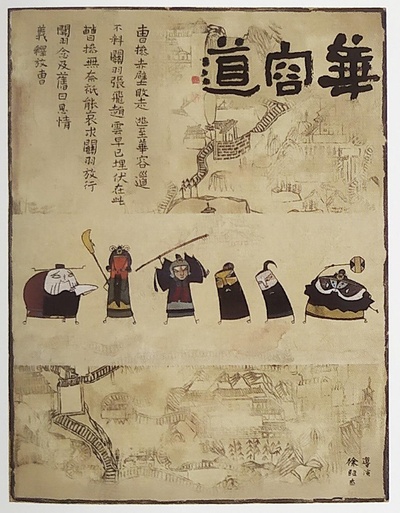 華容道
曹操赤壁敗走 逃至華容道
不料關羽張飛趙雲早已埋伏在此
曹操無奈祇能哀求關羽放行
關羽念及舊日恩情
義釋放曹
導演
徐